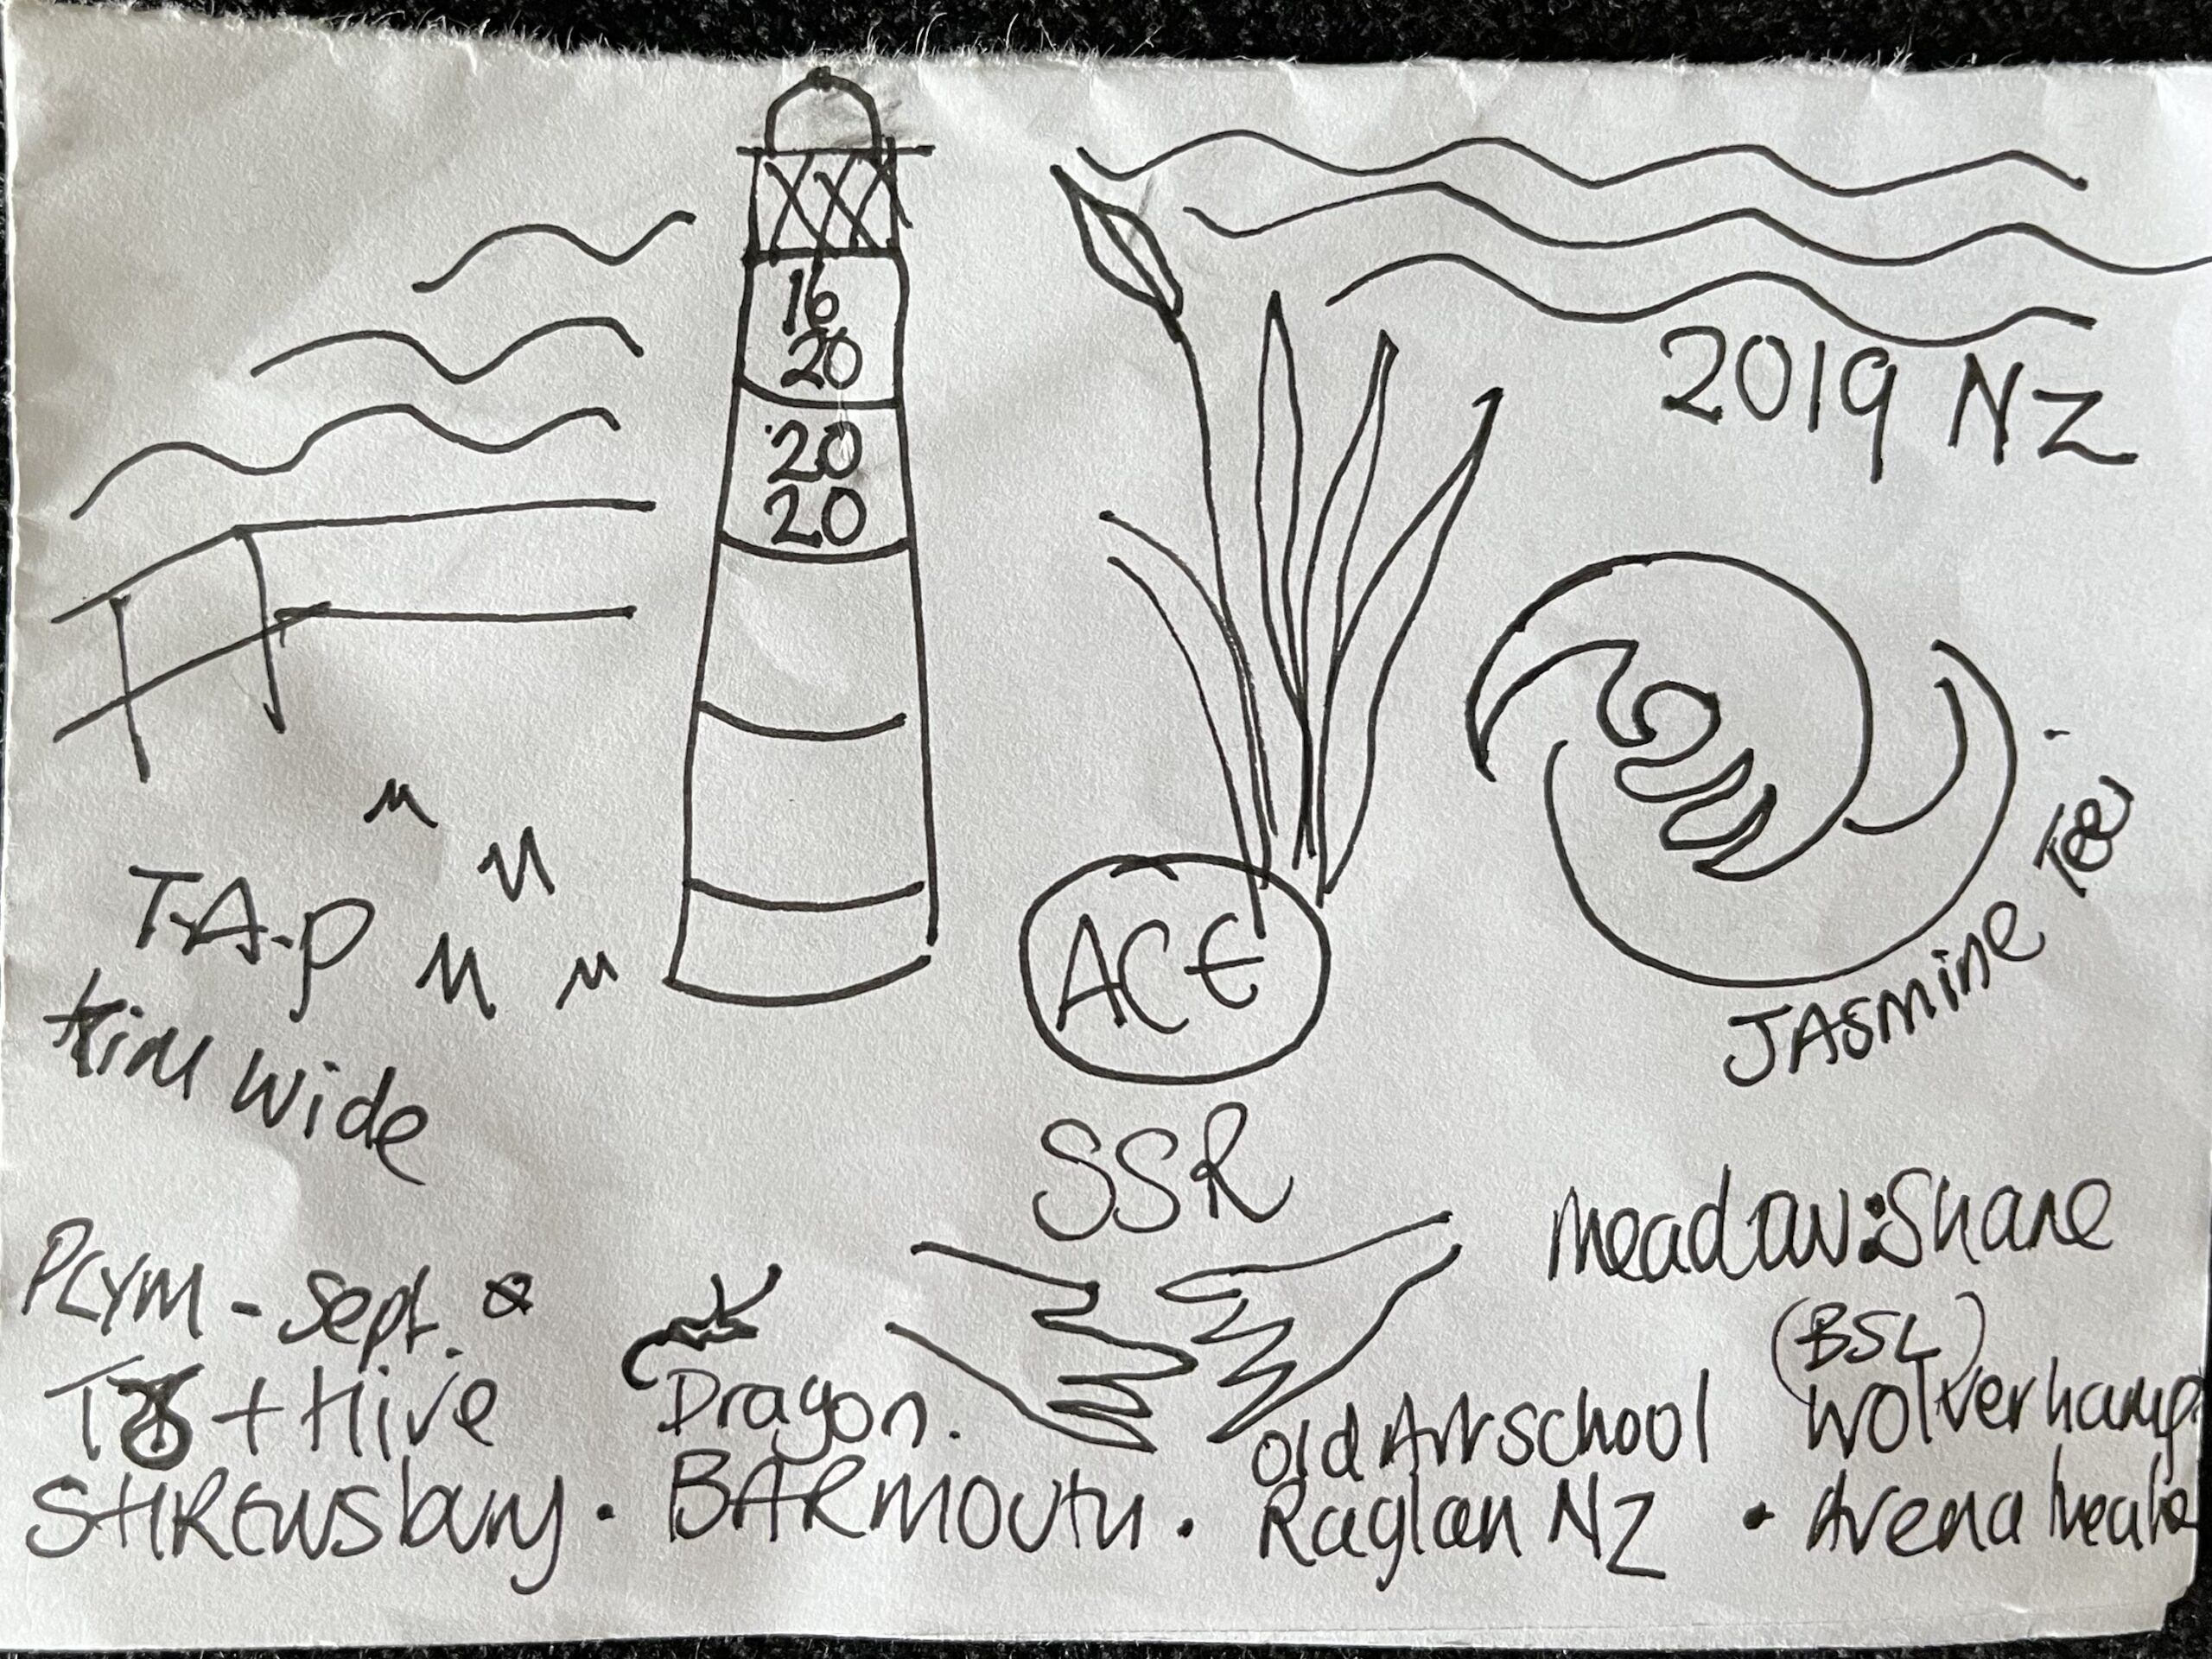 16
20
20
20
2019 NZ
T.A.P
Kim Wide
ACE
JASMINE TEE
SSR
Meadow: Shane
(BSL)
Wolverhamp
Arena
PLYM - Sept.
+ Hive
SHREWSbury.
Dragon.
BARMOUTH.
Old Art School
Raglan NZ